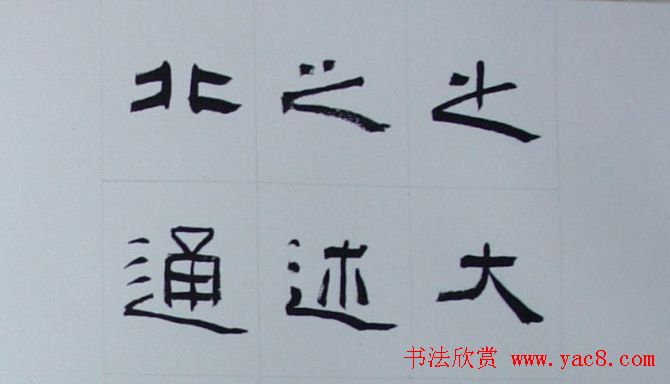 北之
通述大
书法欣赏 www.yac8.com